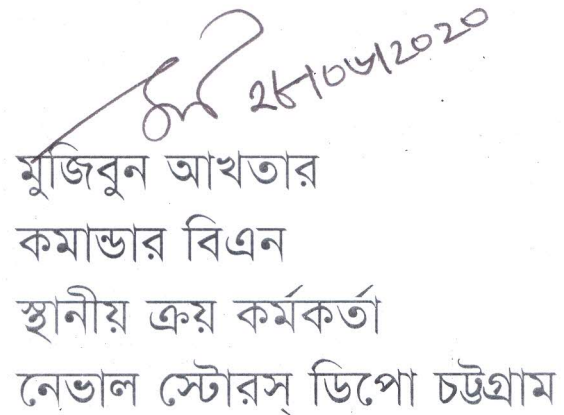 ২৮/০৬/২০২০
মুজিবুন আখতার
কমান্ডার বিএন
স্থানীয় ক্রয় কর্মকর্তা
নেভাল স্টোরস্ ডিপো চট্টগ্রাম